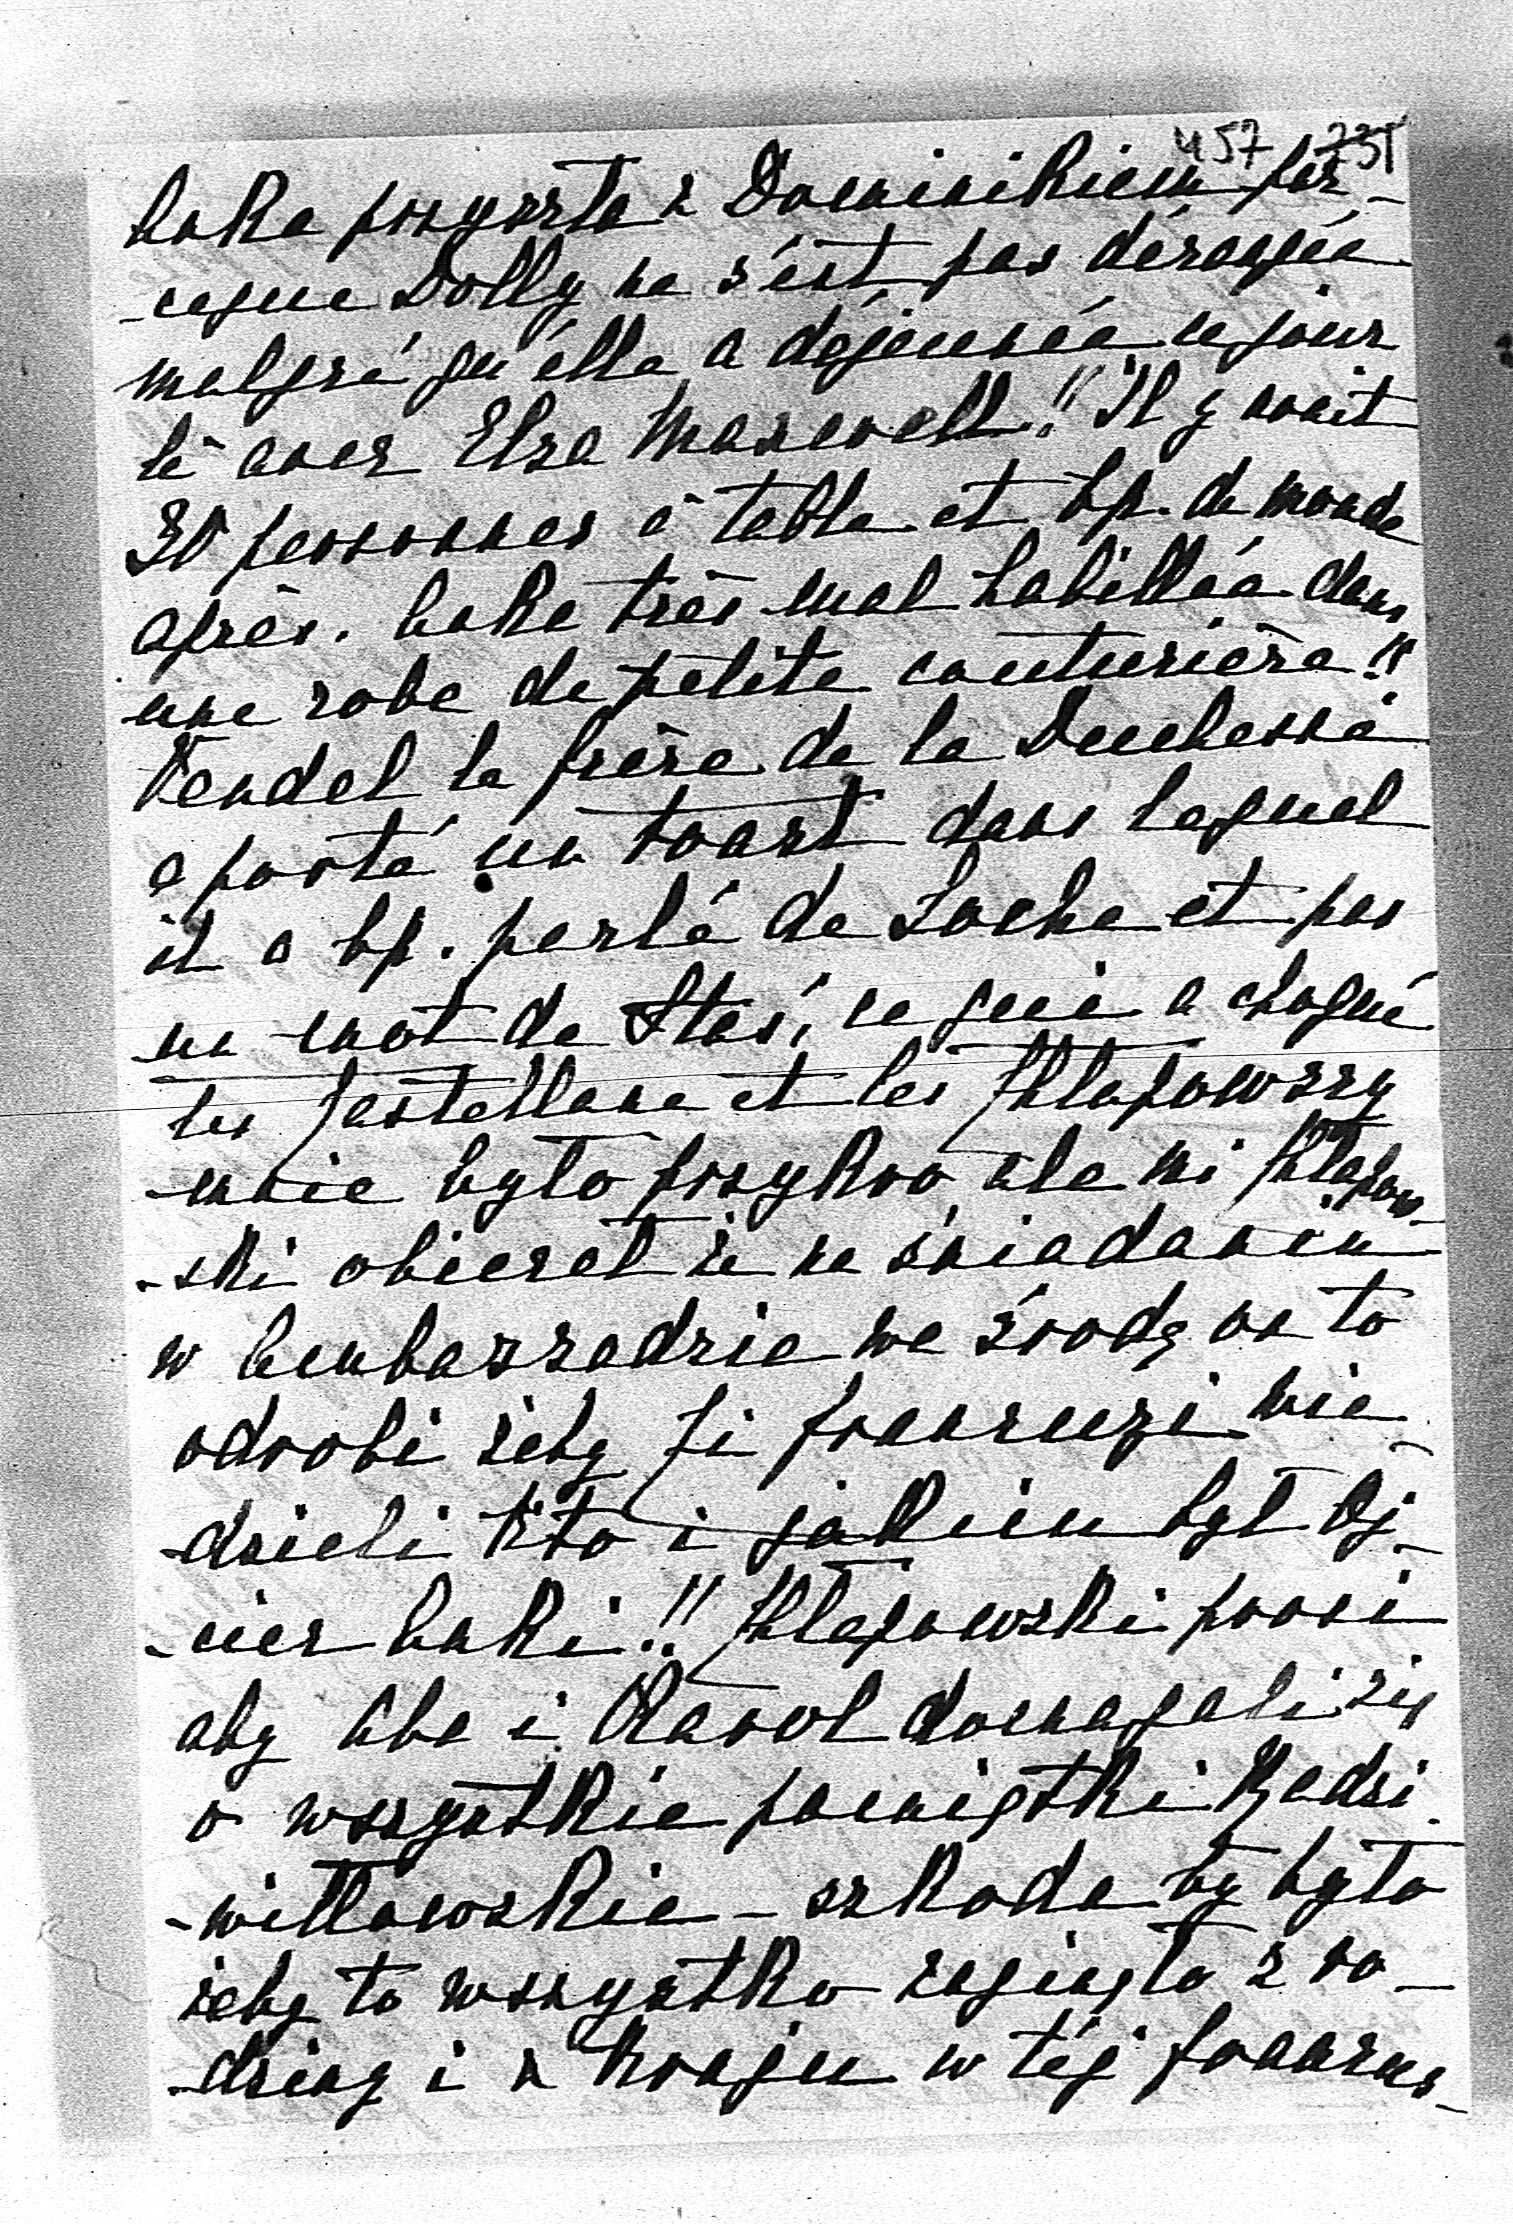 457 231
Luka przyszła z Dominikiem par-
-ceque Dolly ne s'est pas dérangée
malgré qu'élle a déjeunée ce jour
là avec Elsa Maxwell!! Il y avait
30 personnes à table et bp. de monde
après. Luka très mal habillée dans
une robe de petite couturière!!
Vendel le frère de la Duchesse
a porté un toast dans lequel
il a bp. parlé de Loche et pas
un mot de Staś, ce qui a choqué
les Castellane et les Chłapowscy
mnie było przykro ale mi Chłapow-
-ski obiecał że na śniadaniu
w Ambassadzie we środę on to
odrobi żeby Ci francuzi wie-
-dzieli kto i jakim był Oj-
-ciec Luki!! Chłapowski prosi
aby Aba i Karol domagali się
o wszystkie pamiątki Radzi-
-wiłłowskie – szkoda by było
żeby to wszystko zaginęło z ro-
-dziny i z kraju w téj francus-